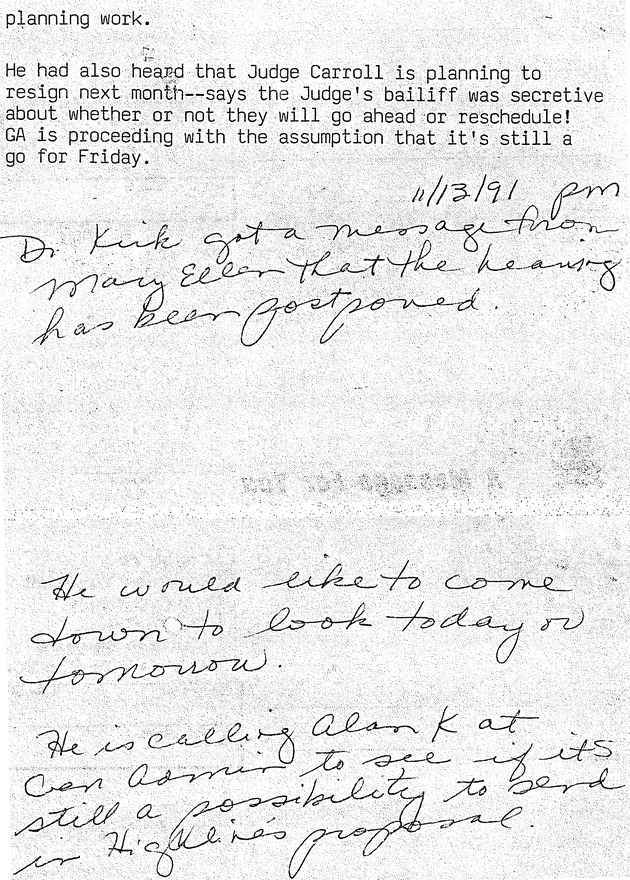 planning work.
He had also heard that Judge Carroll is planning to
resign next month--says the Judge's bailiff was secretive
about whether or not they will go ahead or reschedule!
GA is proceeding with the assumption that it's still a
go for Friday.
11/13/91 pm
Dr Kirk got a message from
Mary Ellen that the hearing
has been postponed.
A Message For You
He would like to come
down to look today or
tomorrow.
He is calling Alan K at
Cen Admin to see if its
still a possibility to send
in Highline's proposal.